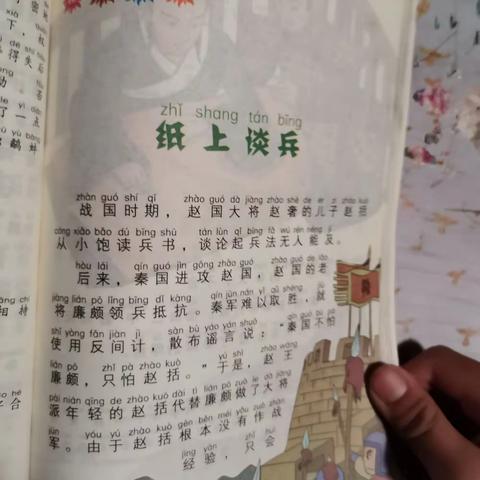 zhǐ shang tán bīng
纸上谈兵
zhàn guó shí qī zhào guó dà jiàng zhào shē de ér zi zhào kuò
战国时期，赵国大将赵奢的儿子赵括
cóng xiǎo bǎo dú bīng shū tán lùn qǐ bīng fǎ wú rén néng jí
从小饱读兵书，谈论起兵法无人能及。
hòu lái qín guó jìn gōng zhào guó zhào guó de lǎo
后来，秦国进攻赵国，赵国的老
jiàng lián pō lǐng bīng dǐ kàng qín jūn nán yǐ qǔ shèng jiù
将廉颇领兵抵抗。秦军难以取胜，就
shǐ yòng fǎn jiàn jì sàn bù yáo yán shuō qín guó bú pà
使用反间计，散布谣言说：“秦国不怕
lián pō zhǐ pà zhào kuò yú shì zhào wáng
廉颇，只怕赵括。”于是，赵王
pài nián qīng de zhào kuò dài tì lián pō zuò le dà jiàng
派年轻的赵括代替廉颇做了大将
jūn yóu yú zhào kuò gēn běn méi yǒu zuò zhàn
军。由于赵括根本没有作战
jīng yàn zhǐ huì
经验，只会